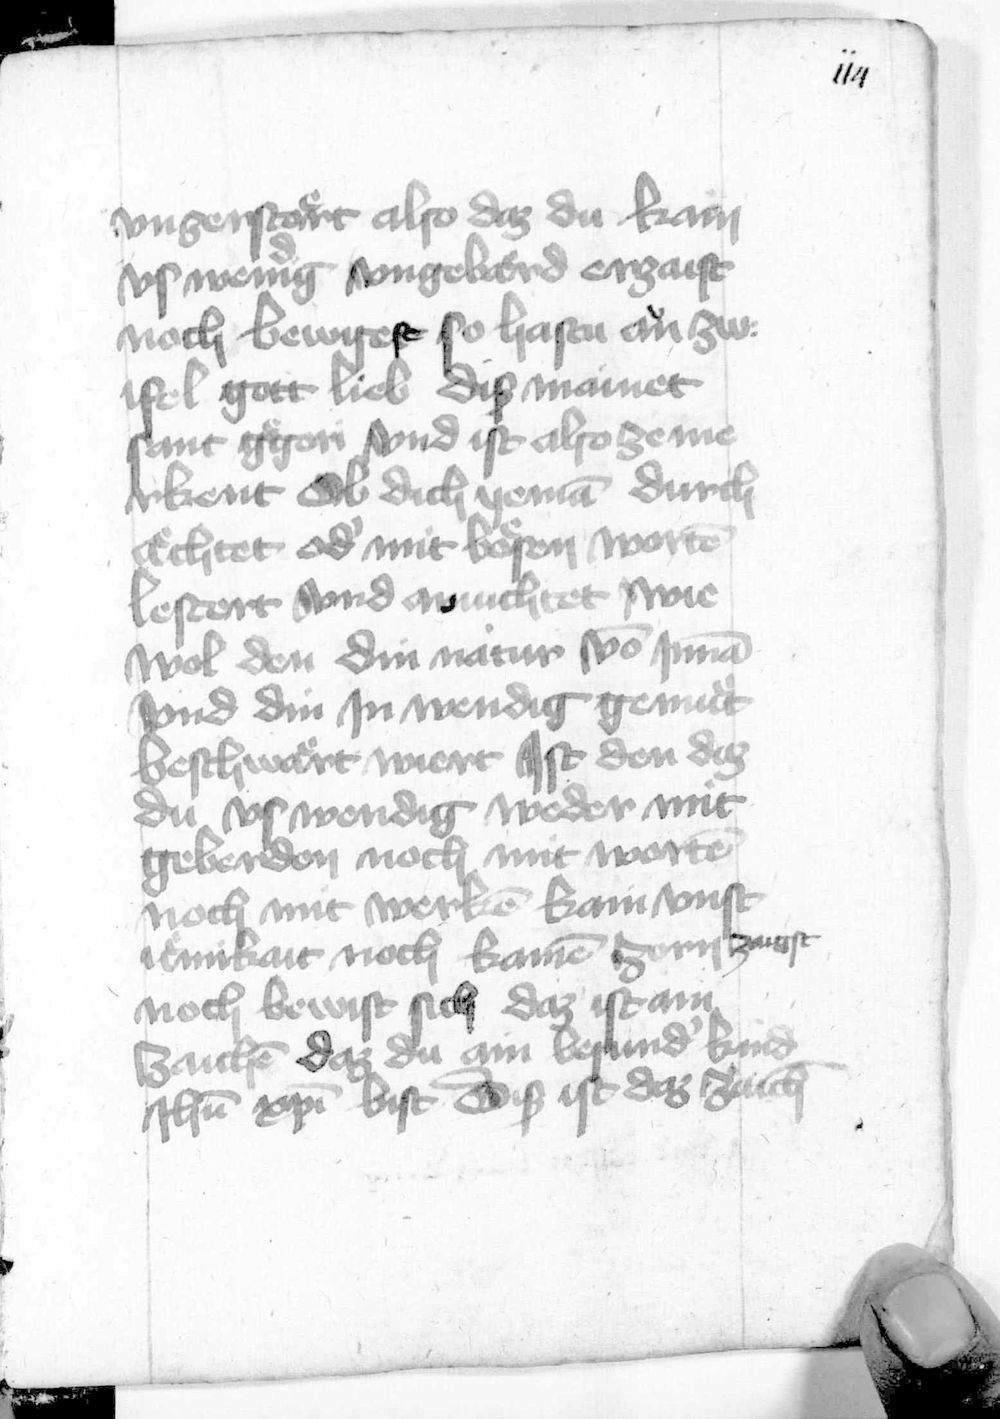 114
vnzerstoͤrt also daz du kain
vswendig vngebaͤrd erzaist
noch bewisest so hastu aͮn zw:
ifel gott lieb diß mainet
sant gͤgori vnd ist also ze me
rkent Ob dich yemā durch
aͤchtet od' mit boͤsen wortē
lestert vnd vnuichtet wie
wol den din natur vō Innā
vnd din In wendig gemuͤt
beschwaͤrt wiert Ist den daz
du vswendig weder mit
geberden noch mit wortē
noch mit werkē kain vnst
uͤmikait noch kainē zorn zaigst
noch bewist sich daz ist ain
zaichē daz du ain besund' kind
Jhū xp̄i bist Diß ist daz zaich̄